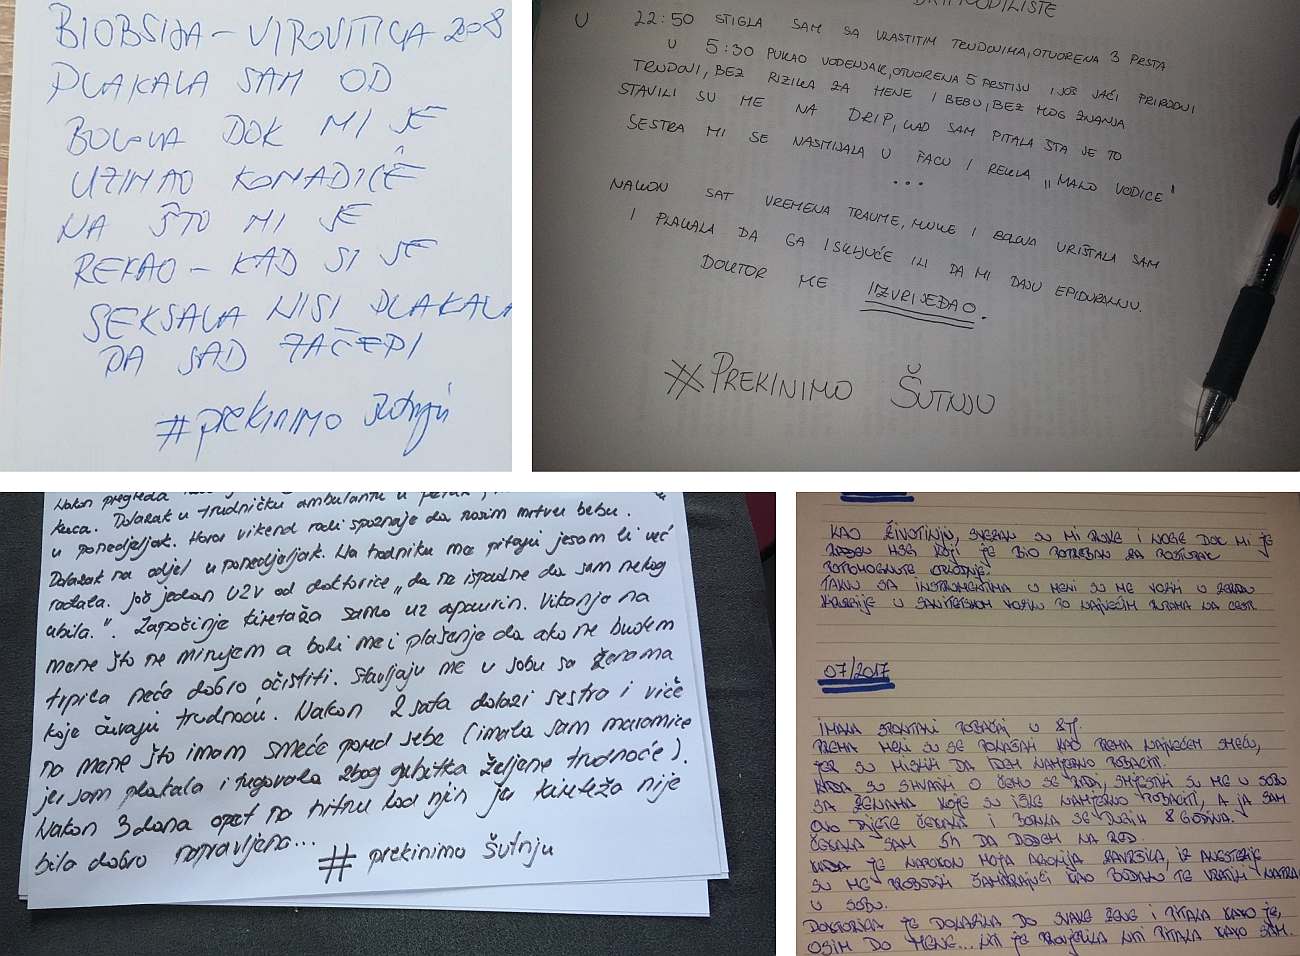 BIOBSIJA – VIROVITICA 2008
PLAKALA SAM OD
BOLOVA DOK MI JE
UZIMAO KOMADIĆE
NA ŠTO MI JE
REKAO – KAD SI SE
SEKSALA NISI PLAKALA
PA SAD ZAČEPI
#prekinimo šutnju
U 22:50 STIGLA SAM SA VLASTITIM TRUDOVIMA, OTVORENA 3 PRSTA
U 5:30 PUKAO VODENJAK, OTVORENA 5 PRSTIJU I JOŠ JAČI PRIRODNI
TRUDOVI, BEZ RIZIKA ZA MENE I BEBU, BEZ MOG ZNANJA
STAVILI SU ME NA DRIP, KAD SAM PITALA ŠTA JE TO
SESTRA MI SE NASMIJALA U FACU I REKLA „MALO VODICE"
...
NAKON SAT VREMENA TRAUME, MUKE I BOLOVA VRIŠTALA SAM
I PLAKALA DA GA ISKLJUČE ILI DA MI DAJU EPIDURALNU.
DOKTOR ME IZVRIJEĐAO.
#PREKINIMO ŠUTNJU
Nakon pregleda
kuća. Dolazak u trudničku ambulantu u petak,
u ponedjeljak. Horor vikend radi spoznaje da nosim mrtvu bebu.
Dolazak na odjel u ponedjeljak. Na hodniku me pitaju jesam li već
rodila. Još jedan UZV od doktorice „da ne ispadne da sam nekog
ubila.". Započinje kiretaža samo uz apaurin. Vikanje na
mene što ne mirujem a boli me i plašenje da ako ne budem
trpila neće dobro očistiti. Stavljaju me u sobu sa ženama
koje čuvaju trudnoću. Nakon 2 sata dolazi sestra i viče
na mene što imam smeće pored sebe (imala sam maramice
jer sam plakala i tugovala zbog gubitka željene trudnoće).
Nakon 3 dana opet na hitnu kod njih jer kiretaža nije
bila dobro napravljena...
# prekinimo šutnju
KAO ŽIVOTINJU, SVEZAN SU MI RUKE I NOGE DOK MI JE
HSG KOJI JE BIO POTREBAN ZA POSTUPAK
POTPOMOGNUTE OPLODNJE.
TAKO SA INSTRUMENTIMA U MENI SU ME VOZILI U
U SANITETSKOM VOZILU PO NAJVEĆIM RUPAMA NA CESTI.
07/2017
IMALA SPONTANI POBAČAJ U 8TJ.
PREMA MENI SU SE PONAŠALI KAO PREMA NAJVEĆEM SMEĆU,
JER SU MISLILI DA IDEM NAMJERNO POBACITI.
KADA SU SHVATILI O ČEMU SE RADI, SMJESTILI SU ME U SOBU
SA ŽENAMA KOJE SU IŠLE NAMJERNO POBACITI, A JA SAM
OVO DIJETE ČEKALA I BORILA SE DUGIH 8 GODINA.
ČEKALA SAM 5H DA DOĐEM NA RED.
KADA JE NAPOKON MOJA AGONIJA ZAVRŠILA, IZ ANESTEZIJE
SU ME PROBUDILI ŠAMARAJUĆI KAO BUDALU TE VRATILI NATRAG
U SOBU.
DOKTORICA JE DOLAZILA DO SVAKE ŽENE I PITALA KAKO JE,
OSIM DO MENE... NITI JE PROVJERILA NITI PITALA KAKO SAM.